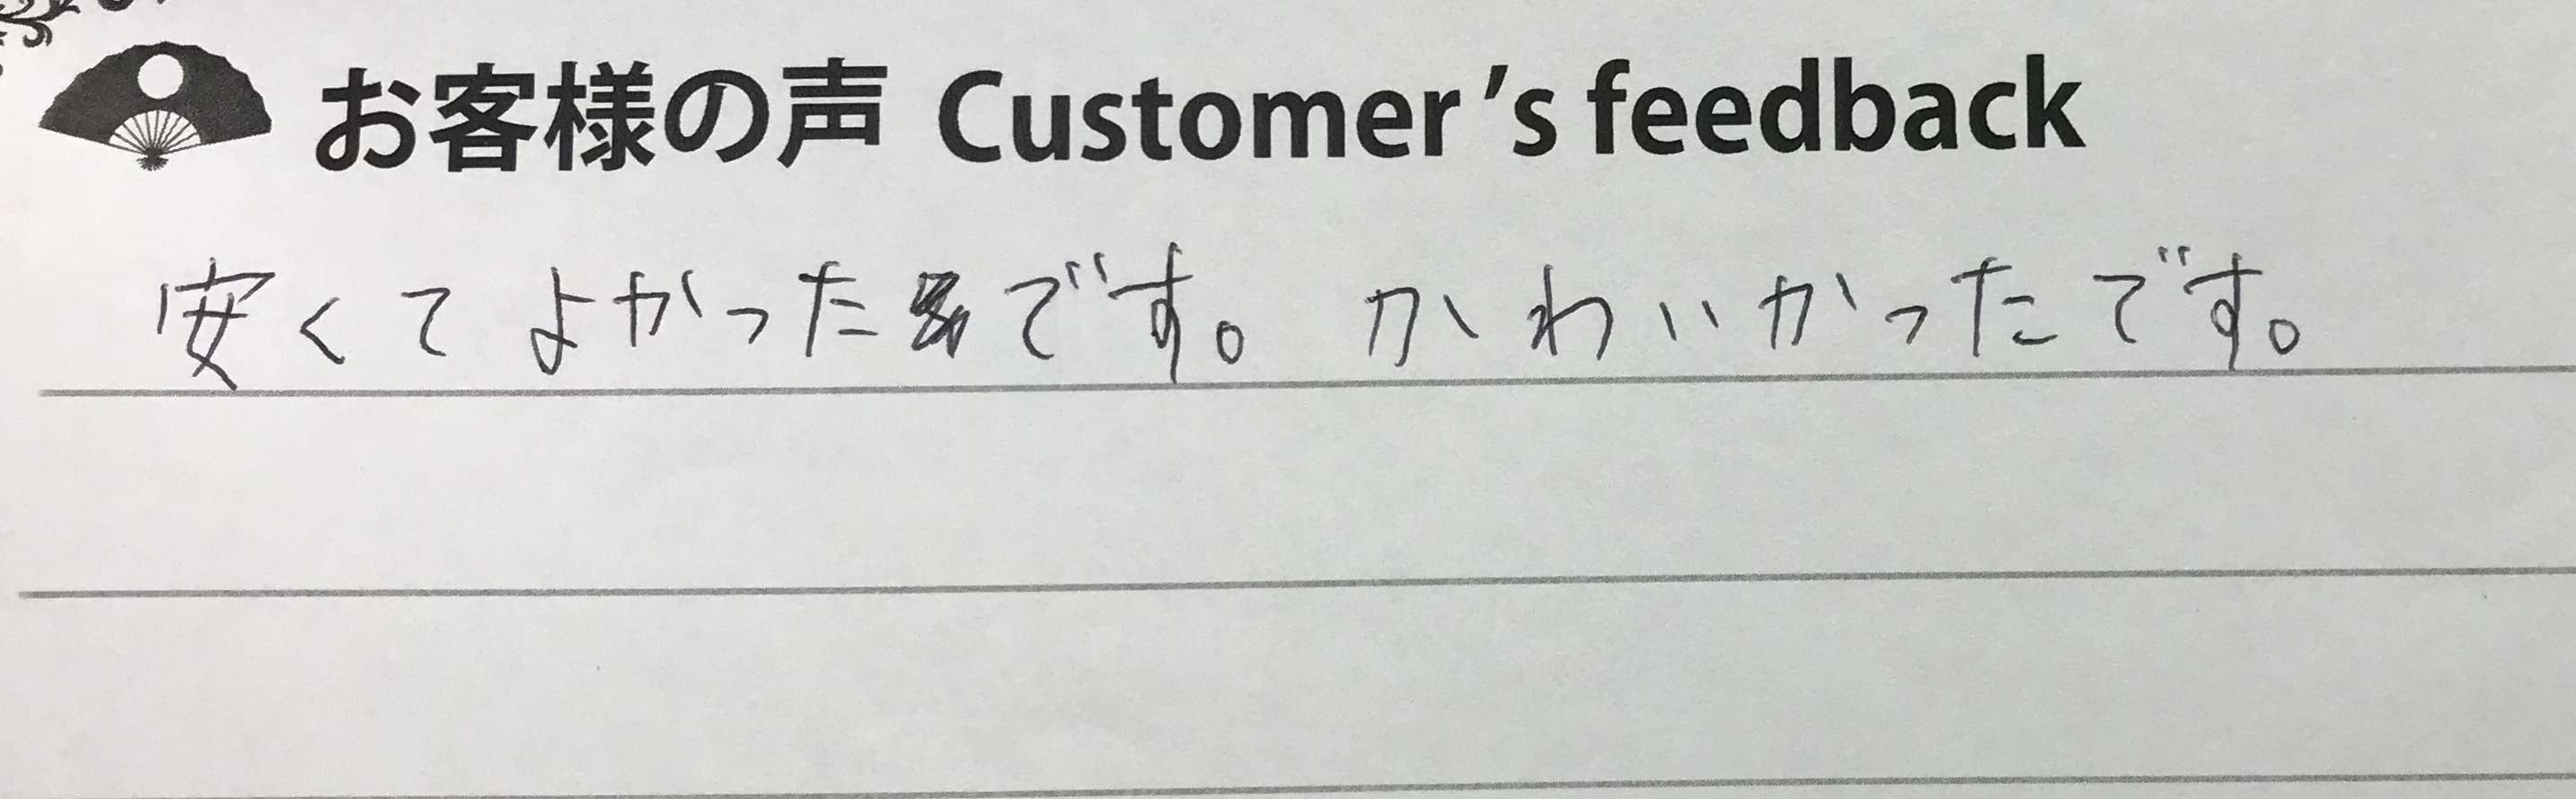 お客様の声 Customer's feedback
安くてよかったです。かわいかったです。